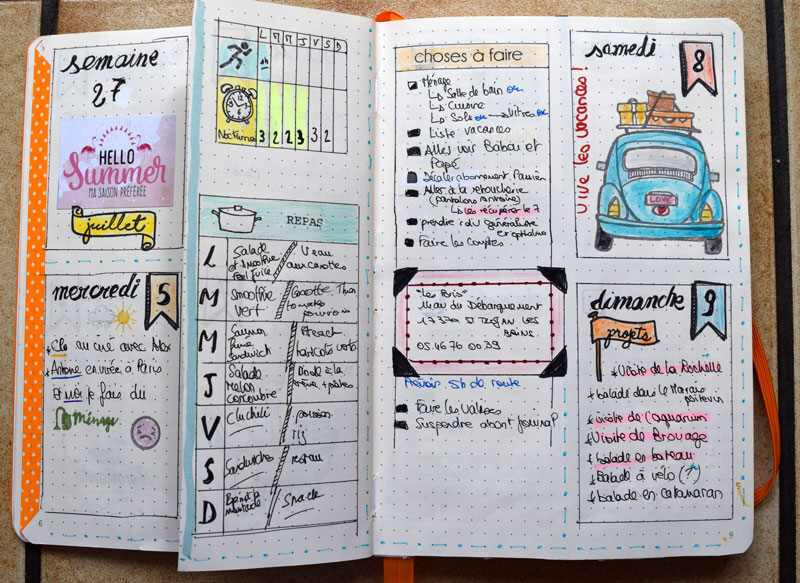 semaine
27
HELLO
Summer
MA SAISON PRÉFÉRÉE
juillet
mercredi 5
Clo au ciné avec Alex
Antoine en virée à Paris
Et moi je fais du
Ménage
L M M J V S D
Nocturne 3 2 2 3 3 2
REPAS
L
Salade
et Smoothie
Veau
aux carottes
M
Smoothie
vert
Carotte Thon
tomates
M
Saumon
sandwich
Steack
haricots verts
J
Salade
Melon
concombre
Dinde à la
crème + pâtes
V
poisson
riz
S
Sandwiches
restau
D
Snack
choses à faire
Ménage
Salle de bain ok
Cuisine
Sols ok → Vitres ok
Liste vacances
Aller voir Babou et
Papé
Décaler abonnement Panier
Aller à la retoucherie
(pantalons Antoine)
les récupérer le 7
prendre rdv généraliste
et
Faire les Comptes
"Les Pins"
du Débarquement
17370 St Trojan les
Bains
05.46 76 00 39
Prévoir 5h de route
Faire les Valises
Suspendre abont journal?
samedi 8
Vive les vacances!
LOVE
dimanche 9
projets
Visite de la Rochelle
balade dans le Marais
poitevin
visite de l'aquarium
Visite de Brouage
balade en bateau
Balade à vélo (1)
balade en catamaran